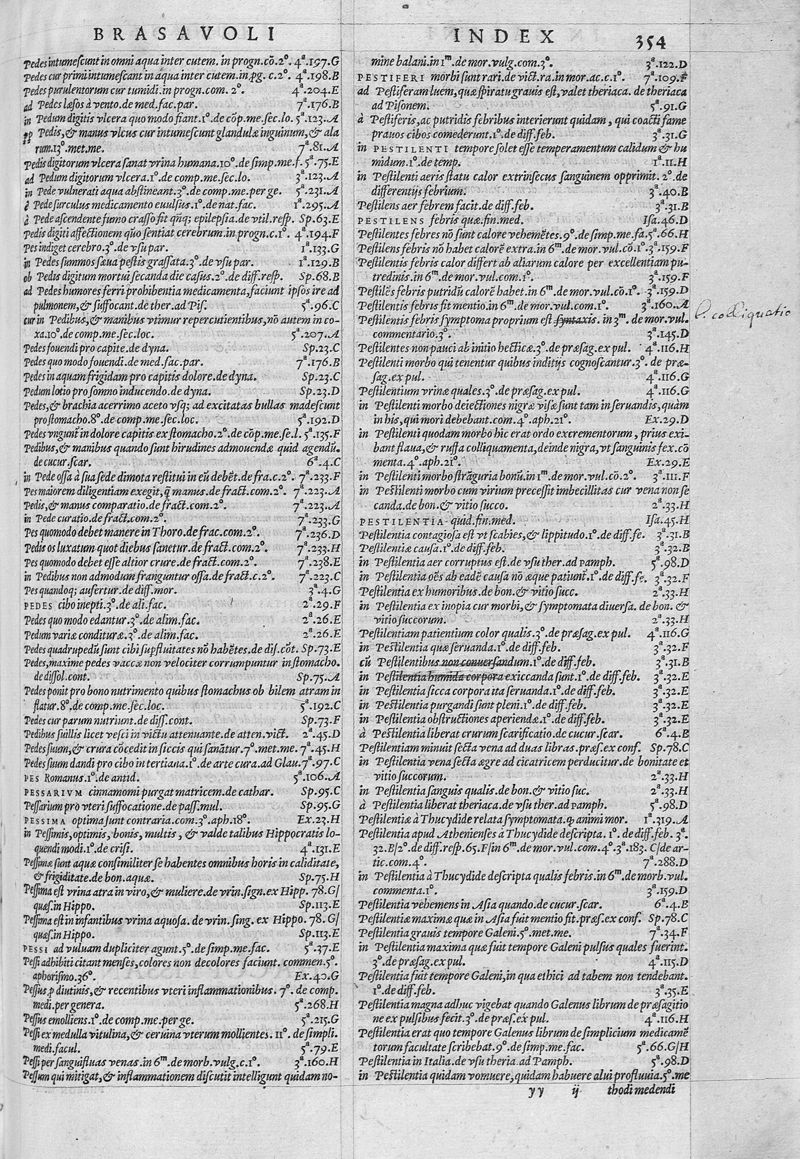 BRASAVOLI INDEX 354
Pedes intumescunt in omni aqua inter cutem. in progn. cõ. 2°. 4ª.197.G
Pedes cur primi intumescant in aqua inter cutem. in pg. c. 2°. 4ª.198.B
Pedes purulentorum cur tumidi. in progn. com. 2°. 4ª.204.E
ad Pedes læsos à vento. de med. fac. par. 7ª.176.B
in Pedum digitis vlcera quo modo fiant. 1°. de cõp. me. sec. lo. 5ª.123.A
Pedis, & manus vlcus cur intumescunt glandulæ inguinum, & ala
rum. 13°. met. me. 7ª.81.A
Pedis digitorum vlcera sanat vrina humana. 10°. de simp. me. f. 5ª.75.E
ad Pedum digitorum vlcera. 1°. de comp. me. sec. lo. 3ª.123.A
in Pede vulnerati aqua abstineant. 3°. de comp. me. per ge. 5ª.231.A
è Pede surculus medicamento euulsus. 1°. de nat. fac. 1ª.295.A
à Pede ascendente fumo crasso fit qñq; epilepsia. de vtil. resp. Sp.63.E
Pedis digiti affectionem quo sentiat cerebrum. in progn. c. 1°. 4ª.194.F
Pes indiget cerebro. 3°. de vsu par. 1ª.133.G
in Pedes summos sæua pestis grassata. 3°. de vsu par. 1ª.129.B
ob Pedis digitum mortui secanda die casus. 2°. de diff. resp. Sp.68.B
ad Pedes humores ferri prohibentia medicamenta, faciunt ipsos ire ad
pulmonem, & suffocant. de ther. ad Pis. 5ª.96.C
cur in Pedibus, & manibus vtimur repercutientibus, nõ autem in co-
xa. 10°. de comp. me. sec. loc. 5ª.207.A
Pedes fouendi pro capite. de dyna. Sp.23.C
Pedes quo modo fouendi. de med. fac. par. 7ª.176.B
Pedes in aquam frigidam pro capitis dolore. de dyna. Sp.23.C
Pedum lotio pro somno inducendo. de dyna. Sp.23.D
Pedes, & brachia acerrimo aceto vsq; ad excitatas bullas madescunt
pro stomacho. 8°. de comp. me. sec. loc. 5ª.192.D
Pedes vngunt in dolore capitis ex stomacho. 2°. de cõp. me. se. l. 5ª.135.F
Pedibus, & manibus quando sunt hirudines admouendæ quid agendũ.
de cucur. scar. 6ª.4.C
in Pede ossa à sua sede dimota restitui in eũ debẽt. de fra. c. 2°. 7ª.233.F
Pes maiorem diligentiam exegit, q̃ manus. de fract. com. 2°. 7ª.223.A
Pedis, & manus comparatio. de fract. com. 2°. 7ª.223.A
in Pede curatio. de fract. com. 2°. 7ª.233.G
Pes quomodo debet manere in Thoro. de frac. com. 2°. 7ª.236.D
Pedis os luxatum quot diebus sanetur. de fract. com. 2°. 7ª.233.H
Pes quomodo debet esse altior crure. de fract. com. 2°. 7ª.238.E
in Pedibus non admodum franguntur ossa. de fract. c. 2°. 7ª.223.C
Pes quandoq; aufertur. de diff. mor. 3ª.4.G
PEDES cibo inepti. 3°. de ali. fac. 2ª.29.F
Pedes quo modo edantur. 3°. de alim. fac. 2ª.26.E
Pedum variæ condituræ. 3°. de alim. fac. 2ª.26.E
Pedes quadrupedũ sunt cibi supfluitates nõ habẽtes. de dis. cõt. Sp.73.E
Pedes, maxime pedes vaccæ non velociter corrumpuntur in stomacho.
de dissol. cont. Sp.75.A
Pedes ponit pro bono nutrimento quibus stomachus ob bilem atram in
flatur. 8°. de comp. me. sec. loc. 5ª.192.C
Pedes cur parum nutriunt. de diss. cont. Sp.73.F
Pedibus suillis licet vesci in victu attenuante. de atten. vict. 2ª.45.D
Pedes suum, & crura cõcedit in siccis qui sanãtur. 7°. met. me. 7ª.45.H
Pedes suum dandi pro cibo in tertiana. 1°. de arte cura. ad Glau. 7ª.97.C
PES Romanus. 1°. de antid. 5ª.106.A
PESSARIVM cinnamomi purgat matricem. de cathar. Sp.95.C
Pessarium pro vteri suffocatione. de pass. mul. Sp.95.G
PESSIMA optima sunt contraria. com. 3°. aph. 18°. Ex.23.H
in Pessimis, optimis, bonis, multis, & valde talibus Hippocratis lo-
quendi modi. 1°. de crisi. 4ª.131.E
Pessimæ sunt aquæ consimiliter se habentes omnibus horis in caliditate,
& frigiditate. de bon. aquæ. Sp.75.H
Pessima est vrina atra in viro, & muliere. de vrin. sign. ex Hipp. 78.G/
quæs. in Hippo. Sp.113.E
Pessima est in infantibus vrina aquosa. de vrin. sing. ex Hippo. 78.G/
quæs. in Hippo. Sp.113.E
PESSI ad vuluam dupliciter agunt. 5°. de simp. me. fac. 5ª.37.E
Pessi adhibiti citant menses, colores non decolores faciunt. commen. 5°.
aphorismo. 36°. Ex.40.G
Pessus p diutinis, & recentibus vteri inflammationibus. 7°. de comp.
medi. per genera. 5ª.268.H
Pessus emolliens. 1°. de comp. me. per ge. 5ª.215.G
Pessi ex medulla vitulina, & ceruina vterum mollientes. 11°. de simpli.
medi. facul. 5ª.79.E
Pessi per sanguifluas venas. in 6ᵐ. de morb. vulg. c. 1°. 3ª.160.H
Pessum qui mitigat, & inflammationem discutit intelligunt quidam no-
mine balani. in 1ᵐ. de mor. vulg. com. 3°. 3ª.122.D
PESTIFERI morbi sunt rari. de vict. ra. in mor. ac. c. 1°. 7ª.109.F
ad Pestiferam luem, quæ spiratu grauis est, valet theriaca. de theriaca
ad Pisonem. 5ª.91.G
à Pestiferis, ac putridis febribus interierunt quidam, qui coacti fame
prauos cibos comederunt. 1°. de diff. feb. 3ª.31.G
in PESTILENTI tempore solet esse temperamentum calidum & hu
midum. 1°. de temp. 1ª.11.H
in Pestilenti aeris statu calor extrinsecus sanguinem opprimit. 2°. de
differentijs febrium. 3ª.40.B
Pestilens aer febrem facit. de diff. feb. 3ª.31.B
PESTILENS febris quæ. fin. med. Isa.46.D
Pestilentes febres nõ sunt calore vehemẽtes. 9°. de simp. me. fa. 5ª.66.H
Pestilens febris nõ habet calorẽ extra. in 6ᵐ. de mor. vul. cõ. 1°. 3ª.159.F
Pestilentis febris calor differt ab aliarum calore per excellentiam pu-
tredinis. in 6ᵐ. de mor. vul. com. 1°. 3ª.159.F
Pestilẽs febris putridũ calorẽ habet. in 6ᵐ. de mor. vul. cõ. 1°. 3ª.159.D
Pestilentis febris fit mentio. in 6ᵐ. de mor. vul. com. 1°. 3ª.160.A
Pestilentis febris symptoma proprium est syntaxis. in 3ᵐ. de mor. vul.
commentario. 3°. 3ª.145.D
P. colliquatio
Pestilentes non pauci ab initio hecticæ. 3°. de præsag. ex pul. 4ª.116.H
Pestilenti morbo qui tenentur quibus indicijs cognoscantur. 3°. de præ-
sag. ex pul. 4ª.116.G
Pestilentium vrinæ quales. 3°. de præsag. ex pul. 4ª.116.G
in Pestilenti morbo deiectiones nigræ visæ sunt tam in seruandis, quàm
in his, qui mori debebant. com. 4°. aph. 21°. Ex.29.D
in Pestilenti quodam morbo hic erat ordo excrementorum, prius exi-
bant flaua, & russa colliquamenta, deinde nigra, vt sanguinis fex. cõ
menta. 4°. aph. 21°. Ex.29.E
in Pestilenti morbo strãguria bonũ. in 1ᵐ. de mor. vul. cõ. 2°. 3ª.111.F
in Pestilenti morbo cum virium precessit imbecillitas cur vena non se
canda. de bon. & vitio succo. 2ª.33.H
PESTILENTIA quid. fin. med. Isa.45.H
Pestilentia contagiosa est vt scabies, & lippitudo. 1°. de diff. fe. 3ª.31.B
Pestilentiæ causa. 1°. de diff. feb. 3ª.32.B
in Pestilentia aer corruptus est. de vsu ther. ad Pamph. 5ª.98.D
in Pestilentia oẽs ab eadẽ causa nõ æque patiunt. 1°. de diff. fe. 3ª.32.F
Pestilentia ex humoribus. de bon. & vitio succ. 2ª.33.H
in Pestilentia ex inopia cur morbi, & symptomata diuersa. de bon. &
vitio succorum. 2ª.33.H
Pestilentiam patientium color qualis. 3°. de præsag. ex pul. 4ª.116.G
in Pestilentia quæ seruanda. 1°. de diff. feb. 3ª.32.F
cũ Pestilentibus non conuersandum. 1°. de diff. feb. 3ª.31.B
in Pestilentia humida corpora exiccanda sunt. 1°. de diff. feb. 3ª.32.E
in Pestilentia sicca corpora ita seruanda. 1°. de diff. feb. 3ª.32.E
in Pestilentia purgandi sunt pleni. 1°. de diff. feb. 3ª.32.E
in Pestilentia obstructiones aperiendæ. 1°. de diff. feb. 3ª.32.E
à Pestilentia liberat crurum scarificatio. de cucur. scar. 6ª.4.B
Pestilentiam minuit secta vena ad duas libras. præs. ex conf. Sp.78.C
in Pestilentia vena secta ægre ad cicatricem perducitur. de bonitate et
vitio succorum. 2ª.33.H
in Pestilentia sanguis qualis. de bon. & vitio suc. 2ª.33.H
à Pestilentia liberat theriaca. de vsu ther. ad pamph. 5ª.98.D
Pestilentiæ à Thucydide relata symptomata. q animi mor. 1ª.319.A
Pestilentia apud Athenienses à Thucydide descripta. 1°. de diff. feb. 3ª.
32.E/2°. de diff. resp. 65.F/in 6ᵐ. de mor. vul. com. 4°. 3ª.183.C/de ar-
tic. com. 4°. 7ª.288.D
in Pestilentia à Thucydide descripta qualis febris. in 6ᵐ. de morb. vul.
commenta. 1°. 3ª.159.D
Pestilentia vehemens in Asia quando. de cucur. scar. 6ª.4.B
Pestilentiæ maximæ quæ in Asia fuit mentio fit. præs. ex conf. Sp.78.C
Pestilentia grauis tempore Galeni. 5°. met. me. 7ª.34.F
in Pestilentia maxima quæ fuit tempore Galeni pulsus quales fuerint.
3°. de præsag. ex pul. 4ª.115.D
Pestilentia fuit tempore Galeni, in qua ethici ad tabem non tendebant.
1°. de diff. feb. 3ª.35.E
Pestilentia magna adhuc vigebat quando Galenus librum de præsagitio
ne ex pulsibus fecit. 3°. de præs. ex pul. 4ª.116.H
Pestilentia erat quo tempore Galenus librum de simplicium medicamẽ
torum facultate scribebat. 9°. de simp. me. fac. 5ª.66.G/H
Pestilentia in Italia. de vsu theria. ad Pamph. 5ª.98.D
in Pestilentia quidam vomuere, quidam habuere alui profluuia. 5°. me
yy ij thodi medendi